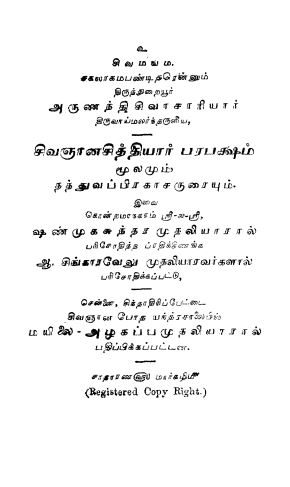 உ
சிவமயம்.
சகலாகமபண்டிதரென்னும்
திருத்துறையூர்
அருணந்திசிவாசாரியார்
திருவாய்மலர்ந்தருளிய,
சிவஞானசித்தியார் பரபக்ஷம்
மூலமும்,
தத்துவப்பிரகாசருரையும்.
இவை
ஸ்ரீ-ல-ஸ்ரீ,
ஷண்முகசுந்தர முதலியாரால்
பரிசோதித்த பிரதிக்கிணங்க
ஆ. சிங்காரவேலு முதலியாரவர்களால்
பரிசோதிக்கப்பட்டு,
சென்னை, சிந்தாதிரிப்பேட்டை
சிவஞான போத யந்திரசாலையில்
மயிலை-அழகப்பமுதலியாரால்
பதிப்பிக்கப்பட்டன.
சாதாரண௵ மார்கழி௴
(Registered Copy Right.)